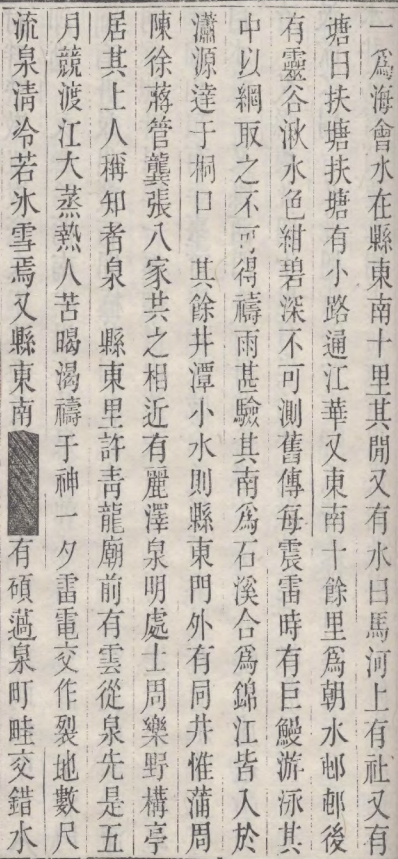 一爲海會水在縣東南十里其閒又有水曰馬河上有社又有
塘曰扶塘扶塘有小路通江華又東南十餘里爲朝水邨邨後
有靈谷湫水色紺碧深不可測舊傳每震雷時有巨鰻游泳其
中以網取之不可得禱雨甚驗其南爲石溪合爲錦江皆入於
瀟源達于桐口　其餘井潭小水則縣東門外有同井惟蒲周
陳徐蔣管龔張八家共之相近有麗澤泉明處士周樂野構亭
居其上人稱知者泉　縣東里許靑龍廟前有雲從泉先是五
月競渡江大蒸熱人苦暍渴禱于神一夕雷電交作裂地數尺
流泉淸冷若氷雪焉又縣東南　有碩薖泉町畦交錯水